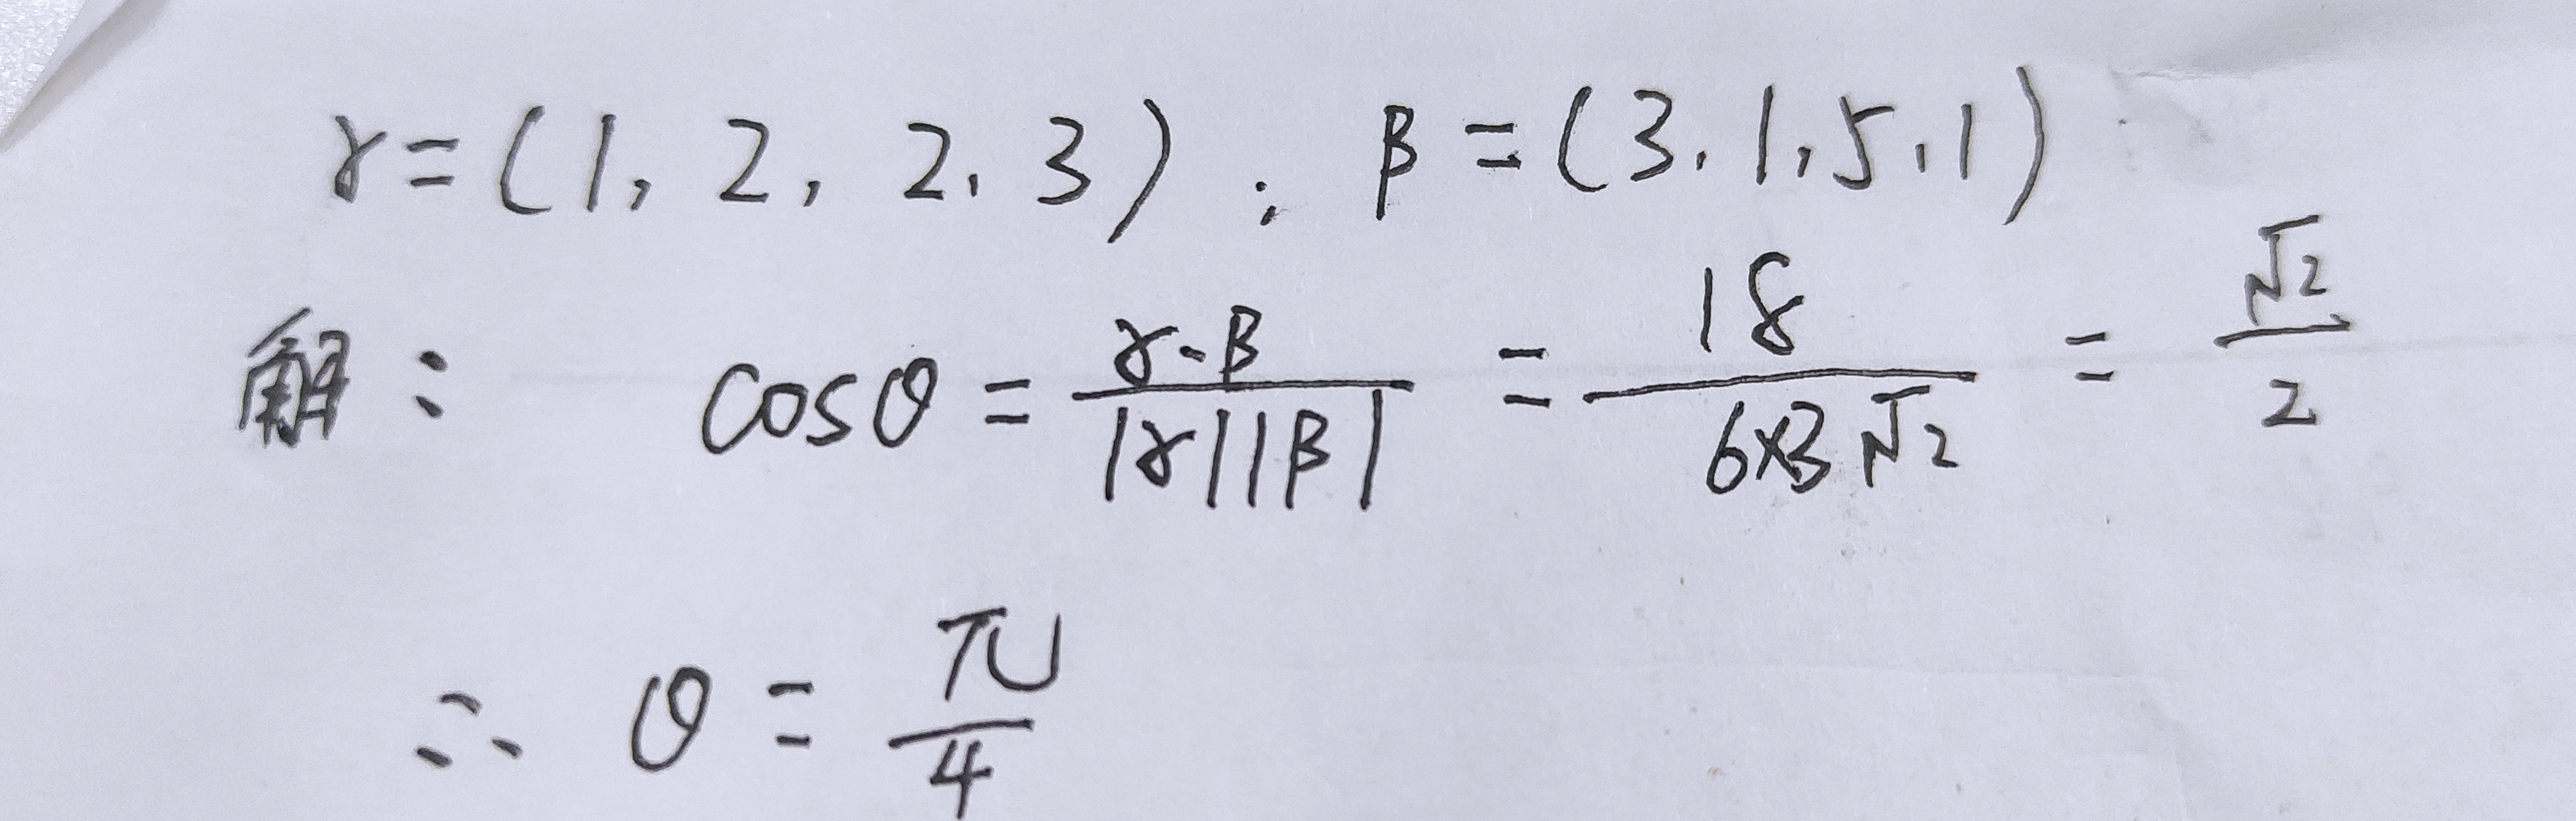 γ=(1, 2, 2, 3) : β=(3, 1, 5, 1)
解: cosθ = γ·β / |γ||β| = 18 / 6×3√2 = √2 / 2
∴ θ = π / 4